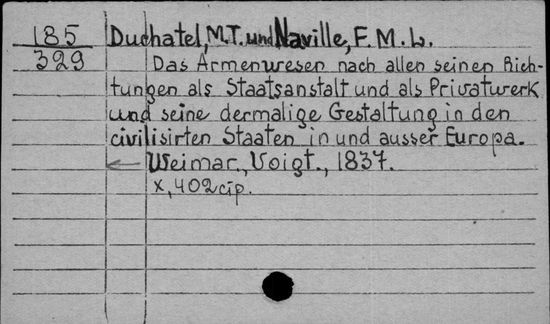 185 Duchatel, M.T. und Naville, F. M. L.
329 Das Armenwesen nach allen seinen Rich-
tungen als Staatsanstalt und als Privatwerk
und seine dermalige Gestaltung in den
civilisirten Staaten in und ausser Europa.
Weimar., Voigt., 1837.
x, 402 cip.